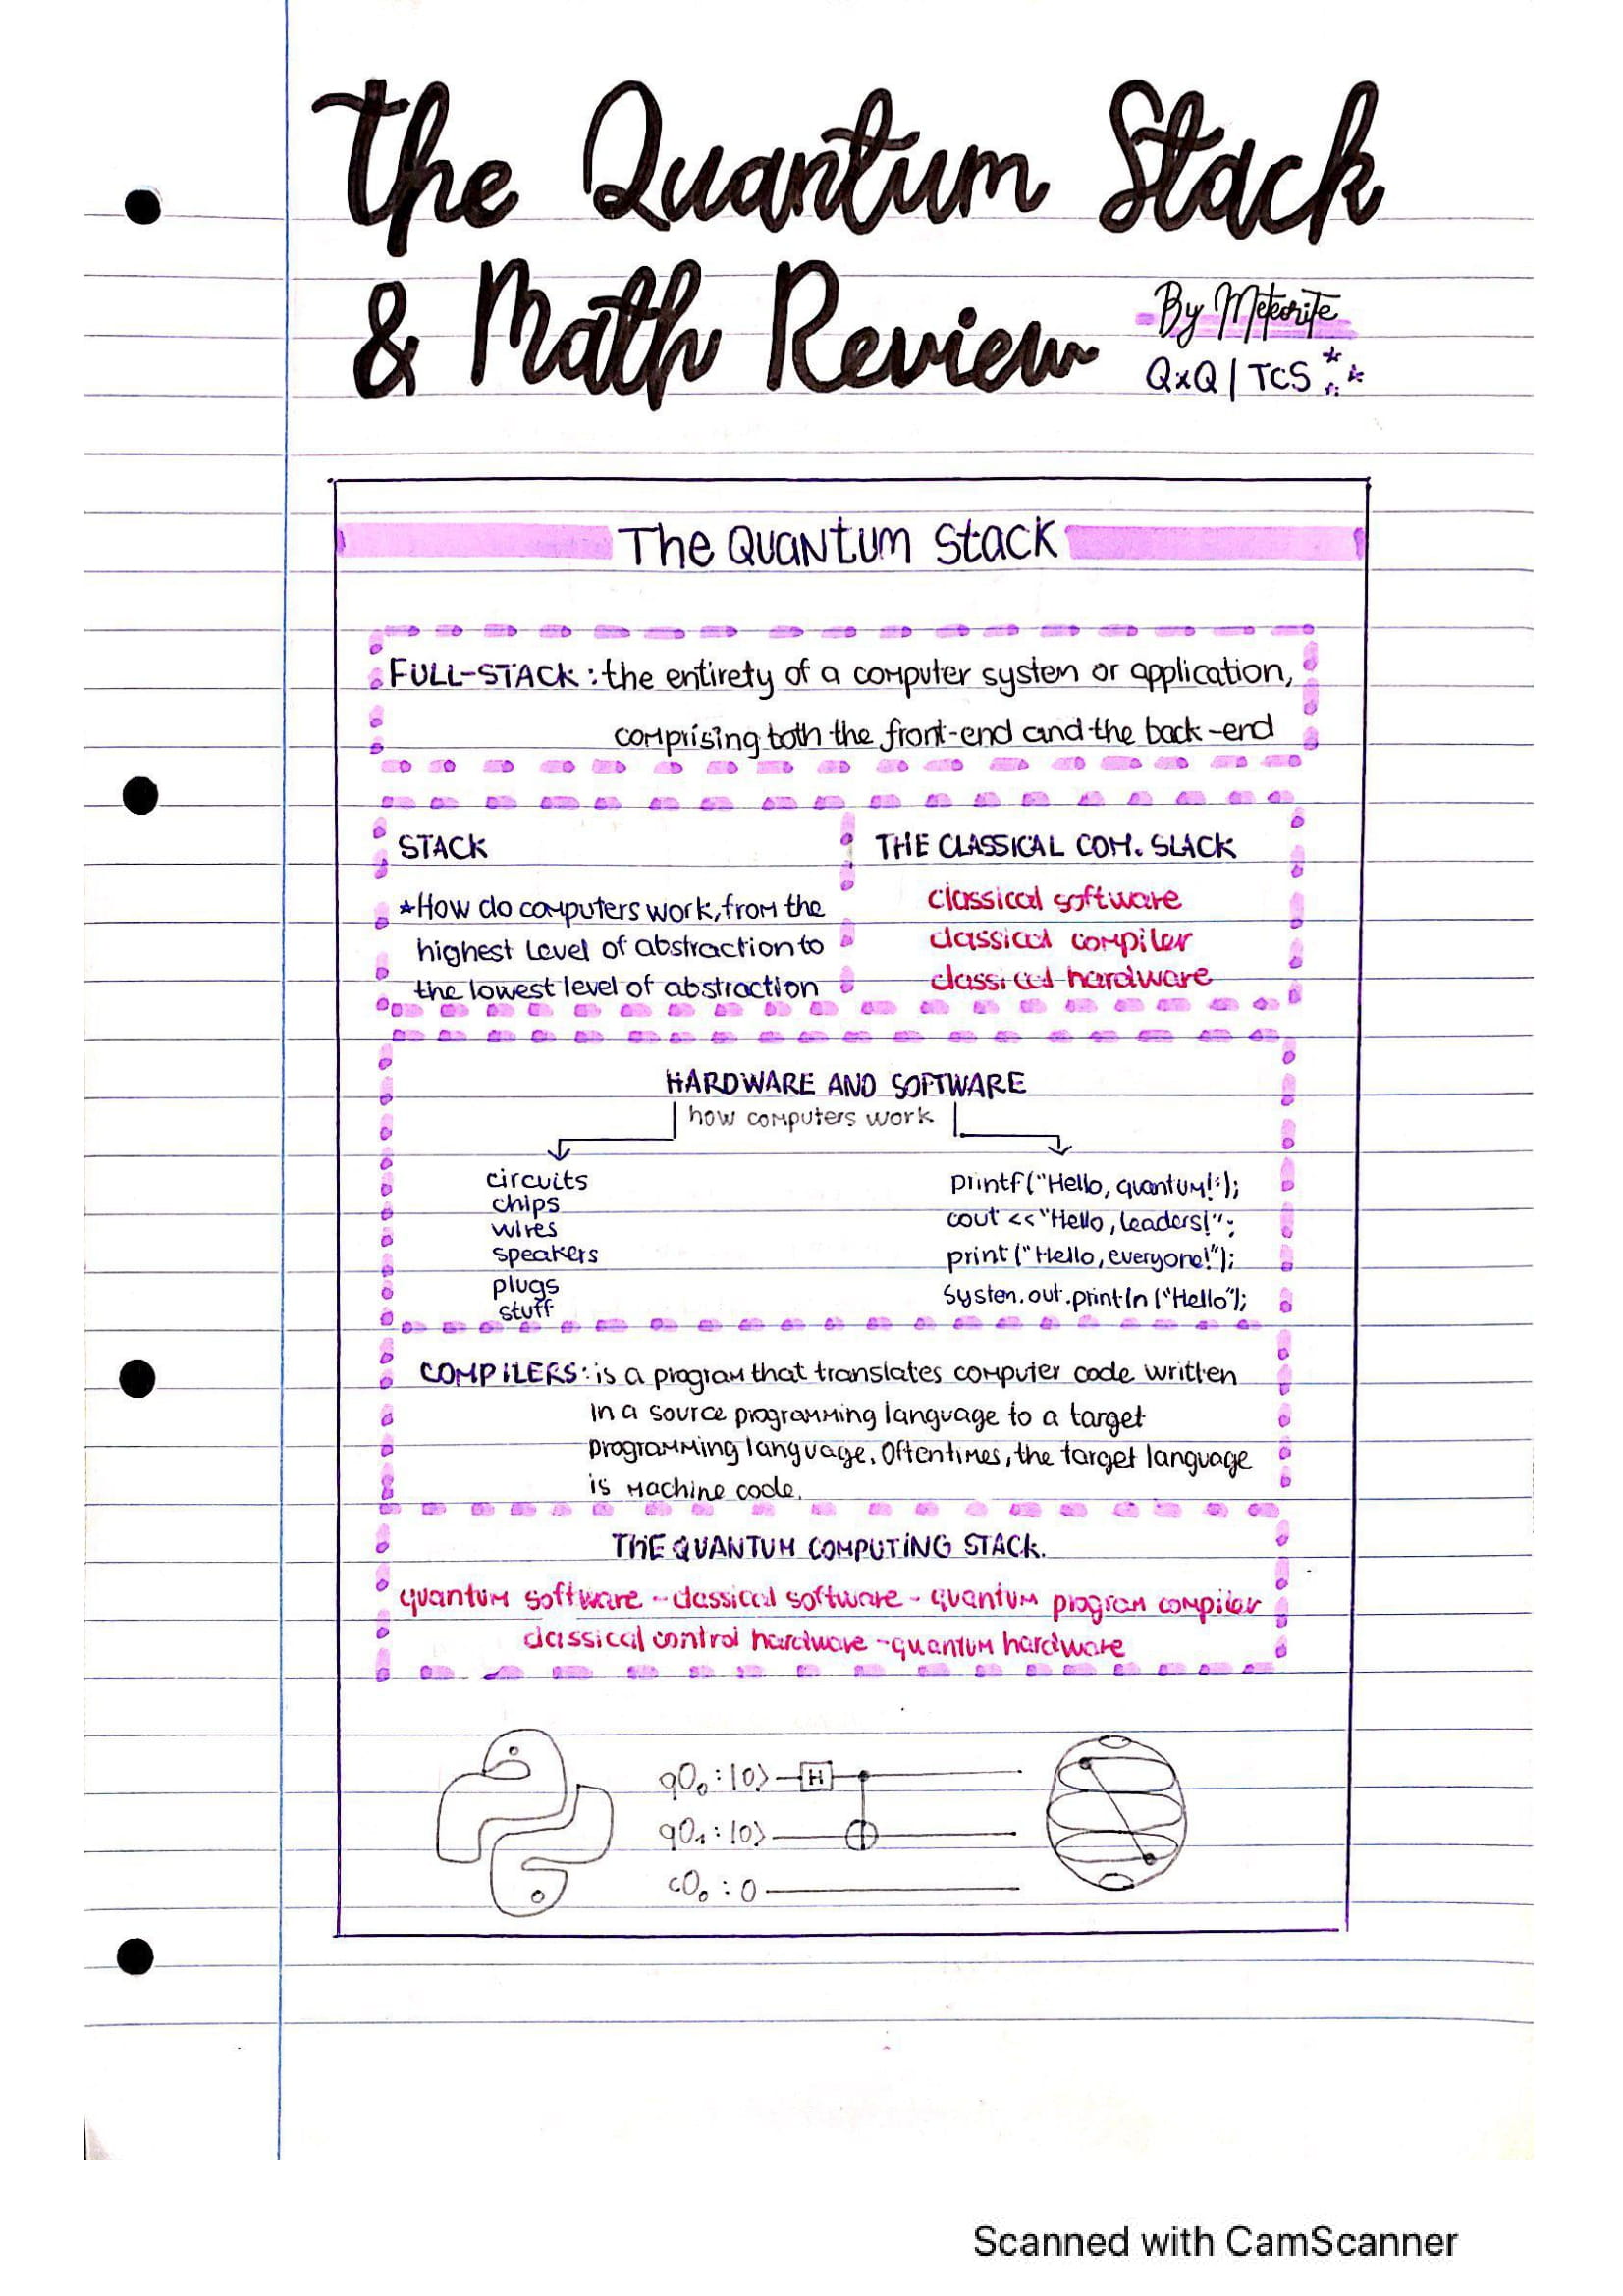 The Quantum Stack
& Math Review
By Meteorite
QxQ | TCS
The Quantum Stack
FULL-STACK: the entirety of a computer system or application,
comprising both the front-end and the back-end
STACK
*How do computers work, from the
highest level of abstraction to
the lowest level of abstraction
THE CLASSICAL COM. SLACK
classical software
classical compiler
classical hardware
HARDWARE AND SOFTWARE
how computers work
circuits
chips
wires
speakers
plugs
stuff
printf("Hello, quantum!");
cout <<"Hello, leaders!";
print("Hello, everyone!");
Systen.out.println("Hello");
COMPILERS: is a program that translates computer code written
in a source programming language to a target
programming language. Oftentimes, the target language
is machine code.
THE QUANTUM COMPUTING STACK.
quantum software - classical software - quantum program compiler
classical control hardware - quantum hardware
q0₀ : |0⟩ H
q0₁ : |0⟩
c0₀ : 0
Scanned with CamScanner